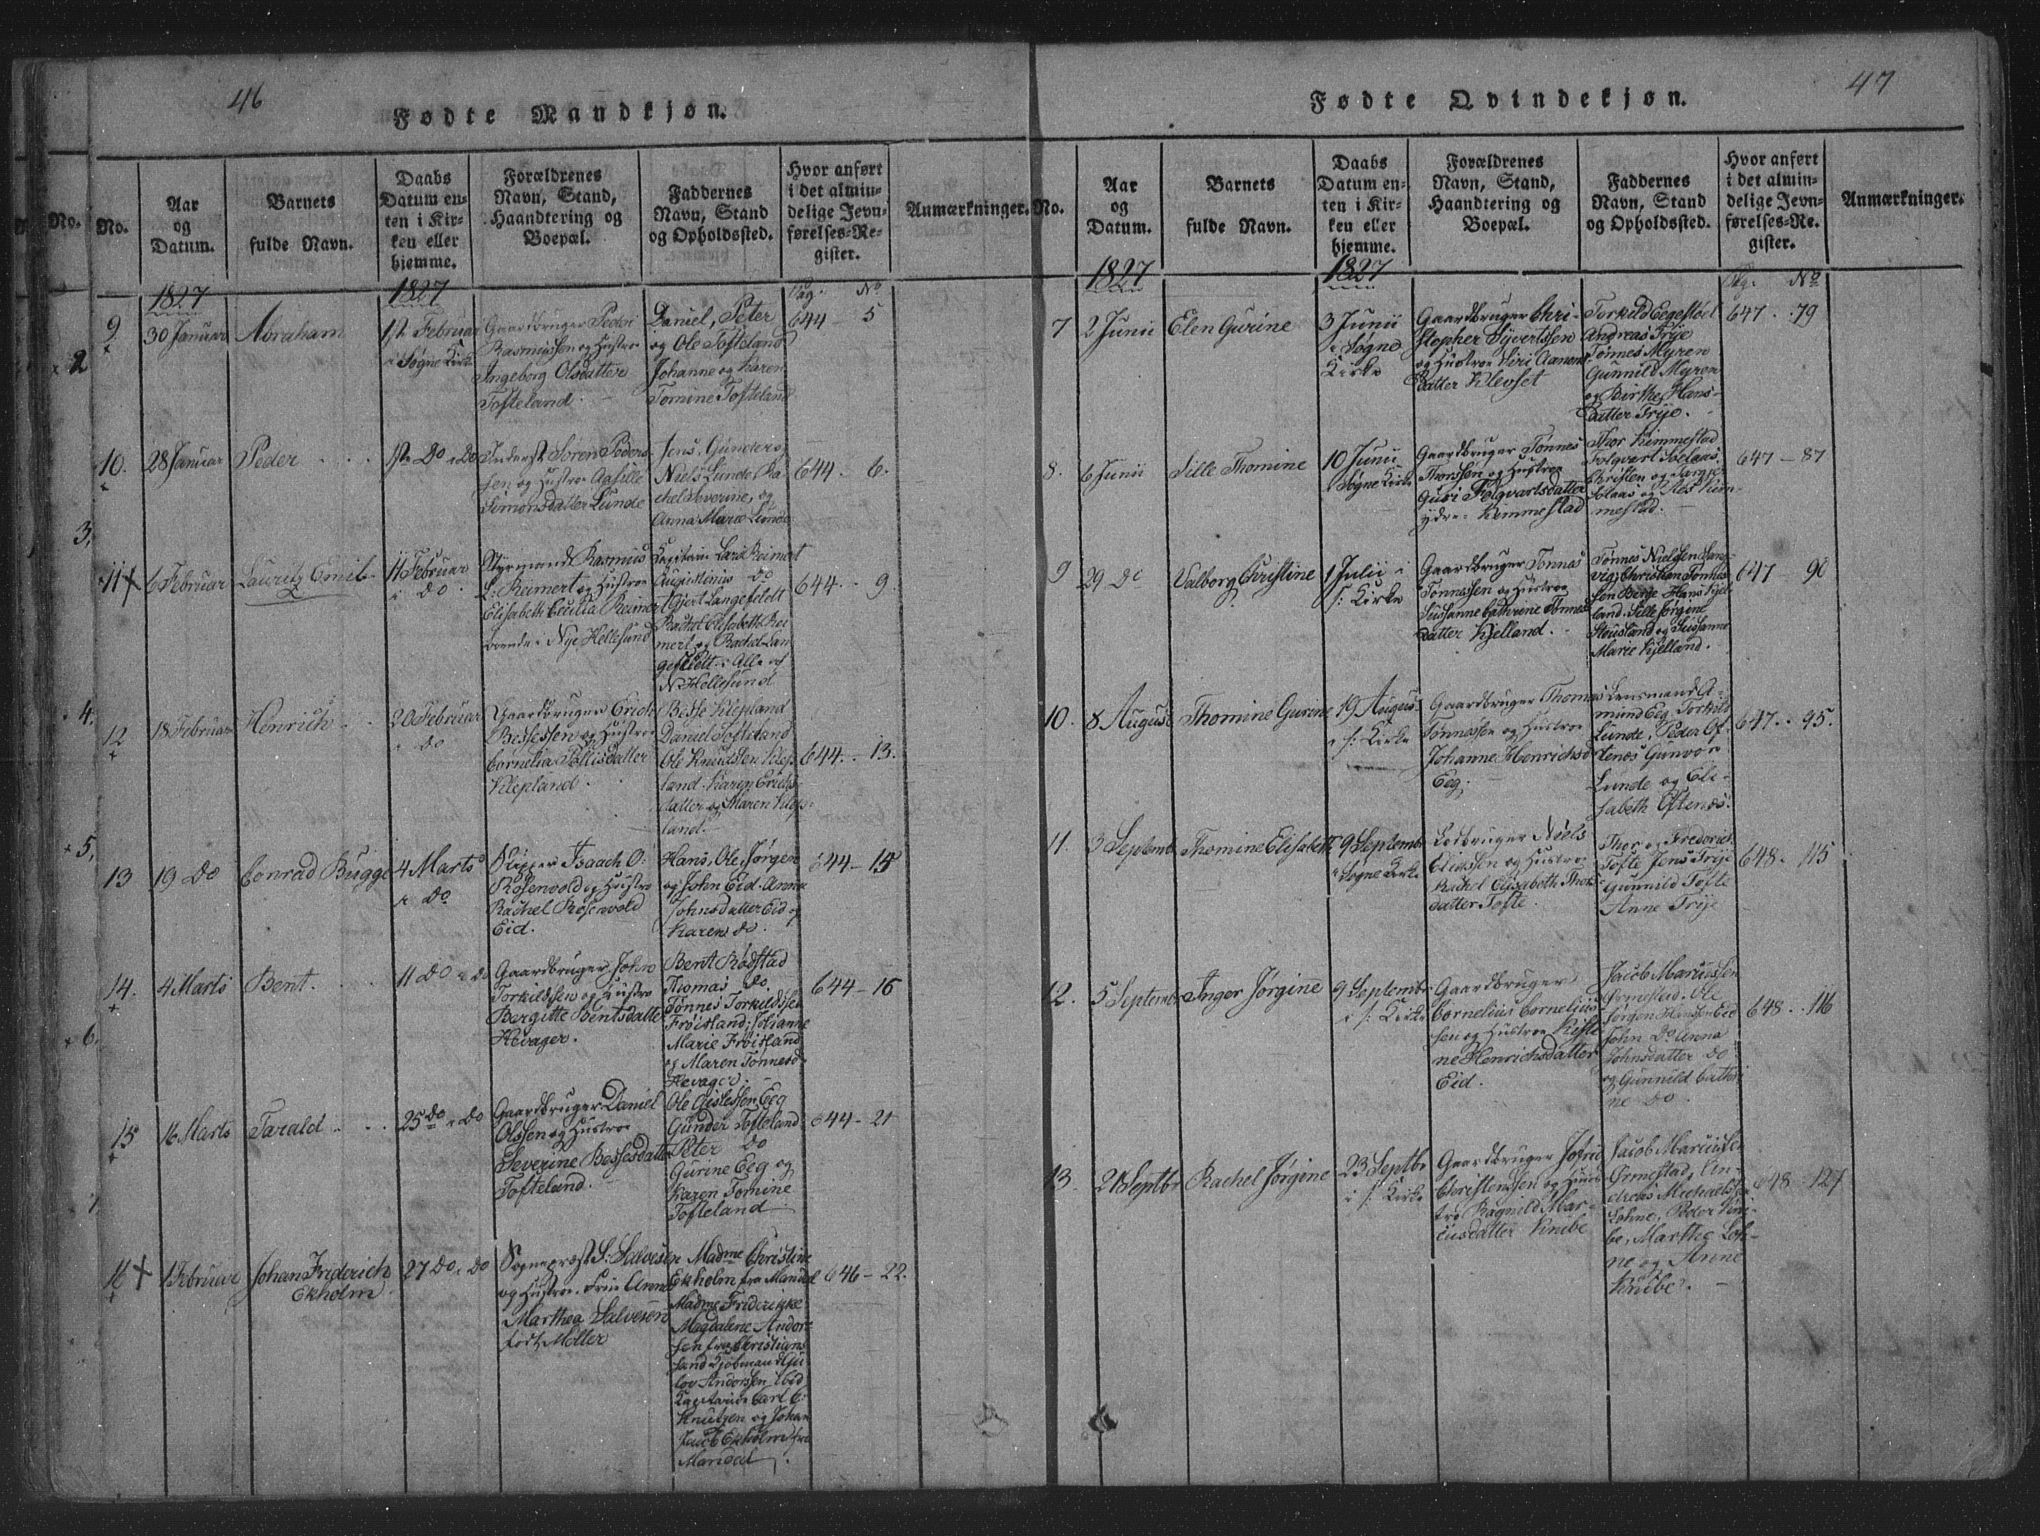 46
Fødte Mandkjøn.
No.
Aar
og
Datum.
Barnets
fulde Navn.
Daabs
Datum en-
ten i Kir-
ken eller
hjemme.
Forældrenes
Navn, Stand,
Haandtering og
Boepæl.
Faddernes
Navn, Stand
og Opholdssted.
Hvor anført
i det almin-
delige Jevn-
førelses-Re-
gister.
Anmærkninger.
1827
1827
Pag. No
9
30 Januar
Abraham
1ste Februar
i Søgne Kirke
Gaardbruger Peder
Rasmussen og Hustroe
Ingeborg Olsdatter
Tofteland.
Daniel, Peter
og Ole Tofteland
Johanne og Karen
Tomine Tofteland
644 - 5
10.
28 Januar
Peder
1ste Do i Do
Inderst Søren Peders
sen og Hustroe Aasille
Simonsdatter Lunde
Jens, Gunders,
Niels Lunde, Ra
chel Severine, og
Anna Marie Lunde
644. 6.
11 +
6 Februar
Lauritz Emil
11 Februar
i Do.
Styrmand Rasmus
L. Reimert og Hustroe
Elisabeth Cecilia Reimert
boende i Nye Hellesund
Capitain Lars Reimert
Augustinus Do
Gjert Langefeldt
Rachel Elisabeth Rei
mert og Rachel Lan
gefeldt. Alle af
N Hellesund
644. - 9.
12
18 Februar
Henrich
20 Februar
i Do
Gaardbruger Erich
Bessesen og Hustroe
Cornelia Tollisdatter
Klepland.
Besse Klepland
Daniel Tofteland
Ole Knudssen Klep
land. Karen Erichs
datter og Maren Klep
land.
644. - 13.
13
19 Do
Conrad Bugge
4 Marts
i Do
Skipper Isaach O:
Rosenvold og Hustro
Rachel Rosenvold
Eid.
Hans, Ole, Jørgen
og John Eid. Anna
Johnsdatter Eid og
Karen do.
644 - 15
14.
4 Marts
Bent.
11 Do i Do
Gaardbruger John
Torkildssen og Hustro
Bergitte Bentsdatter
Hevager.
Bent Rødstad
Thomas do.
Tønnes Torkildssen
Frøisland; Johanne
Marie Frøisland
og Maren Tønnesd
Hevager.
644 - 16
15
16 Marts
Tarald
25 Do i Do
Gaardbruger Daniel
Olssen og Hustroe
Severine Bessesdatter
Tofteland.
Ole Gislessen Eeg
Gunder Tofteland
Peter Do
Gurine Eeg og
Karen Tomine
Tofteland
644 - 21
16 +
1 Februar
Johan Friderich
Ekholm
27 Do. Do
Sogneprest S: Salvesen
og Hustroe. Frue Anne
Marthea Salvesen
født Møller
Madme Christine
Ekholm fra Mandal
Madme Friderikke
Magdalene Ander-
sen fra Christians
sand Kjøbmand Gu
lov Anderssen ibid
Kapitaine Carl C:
Knutzen og Johan
Jacob Ekholm fra
Mandal.
646 - 22.
47
Fødte Qvindekjøn.
No.
Aar
og
Datum.
Barnets
fulde Navn.
Daabs
Datum en-
ten i Kir-
ken eller
hjemme.
Forældrenes
Navn, Stand,
Haandtering og
Boepæl.
Faddernes
Navn, Stand
og Opholdssted.
Hvor anført
i det almin-
delige Jevn-
førelses-Re-
gister.
Anmærkninger.
1827
1827
Pag. No
7
2 Junii
Elen Gurine
3 Junii
i Søgne
Kirke
Gaardbruger Chri-
stopher Syvertssen
og Hustroe Siri Aanons
datter Klevset
Torkild Eegestøel
Andreas Trye
Tønnes Myren
Gunnild Myren
og Birthe Hans-
datter Trye.
647. 79
8.
6 Junii
Sille Thomine
10 Junii
i Søgne Kirke
Gaardbruger Tønnes
Thorssen og Hustroe
Guri Folqvartsdatter
ydre Kimmestad
Thor Kimmestad
Folqvart Solaas
Christen og
Solaas og Kim-
mestad.
647 - 87
9
29 Do
Valborg Christine
1 Julii i
S: Kirke
Gaardbruger Tønnes
Tønnessen og Hustroe
Susanne Cathrine Tønnes
datter Kjelland.
Tønnes Nielssen Lang-
vig; Christian Tønnes
sen Berge Hans Kjel
land. Sille Jørgine
Stousland og Susanne
Marie Kjelland.
647 90
10.
8 August
Thomine Gurine
19 August
i S: Kirke
Gaardbruger Thomas
Tønnessen og Hustroe
Johanne Henrichsd
Eeg.
Lensmand A-
mund Eeg, Torkild
Lunde, Peder Of-
tenes Gunvor
Lunde og Eli-
sabeth Oftenes.
647. 95.
11.
3 Septemb
Thomine Elisabeth
9 Septembr
i Søgne Kirke
Lodbruger Niels
Eliassen og Hustroe
Rachel Elisabeth Thors
datter Tofte.
Thor og Frederich
Tofte Jens Trye
Gunnild Tofte
Anne Trye
648. 115
12.
5 Septembr
Inger Jørgine
9 Septembr
i S: Kirke
Gaardbruger
Cornelius Cornelius
sen og Hustroe Kisti
ne Henrichsdatter
Eid.
Jacob Mariussen
Ormestad. Ole
Jørgen Hanssen Eid
John Do Anna
Johnsdatter do
og Gunnild Cathri
ne do.
648. 116
13.
21 Septbr
Rachel Jørgine
23 Septbr
i S: Kirke
Gaardbruger Jofrid
Christenssen og Hus
tro Ragnild Mar-
cusdatter Knibe
Jacob Mariussen
Ormestad; An-
dreas Michaelssen
Løhne, Peder Kni-
be, Marthe Løh-
ne og Anne
Knibe.
648. 127
No.
2
3.
4.
5.
6.